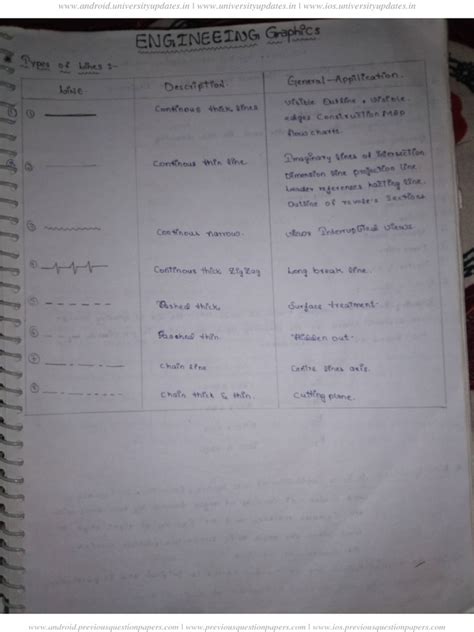 www.android.universityupdates.in | www.universityupdates.in | www.ios.universityupdates.in
ENGINEEING Graphics
Types of Lines :-
Line
Description.
General-Application.
① Continous thick lines
Visible Outline & visible
edges Construction map
flow charts.
② Continous thin line.
Imaginary lines of intersection
Dimension line projection line
Leader references hatting line.
Outline of sections
③ Continous narrow.
Views.
④ Continous thick ZigZag
Long break line.
⑤ Dashed thick
Surface treatment.
⑥ Dashed thin.
Hidden out.
⑦ Chain line
Centre lines axis.
⑧ Chain thick & thin.
Cutting plane.
www.android.previousquestionpapers.com | www.previousquestionpapers.com | www.ios.previousquestionpapers.com